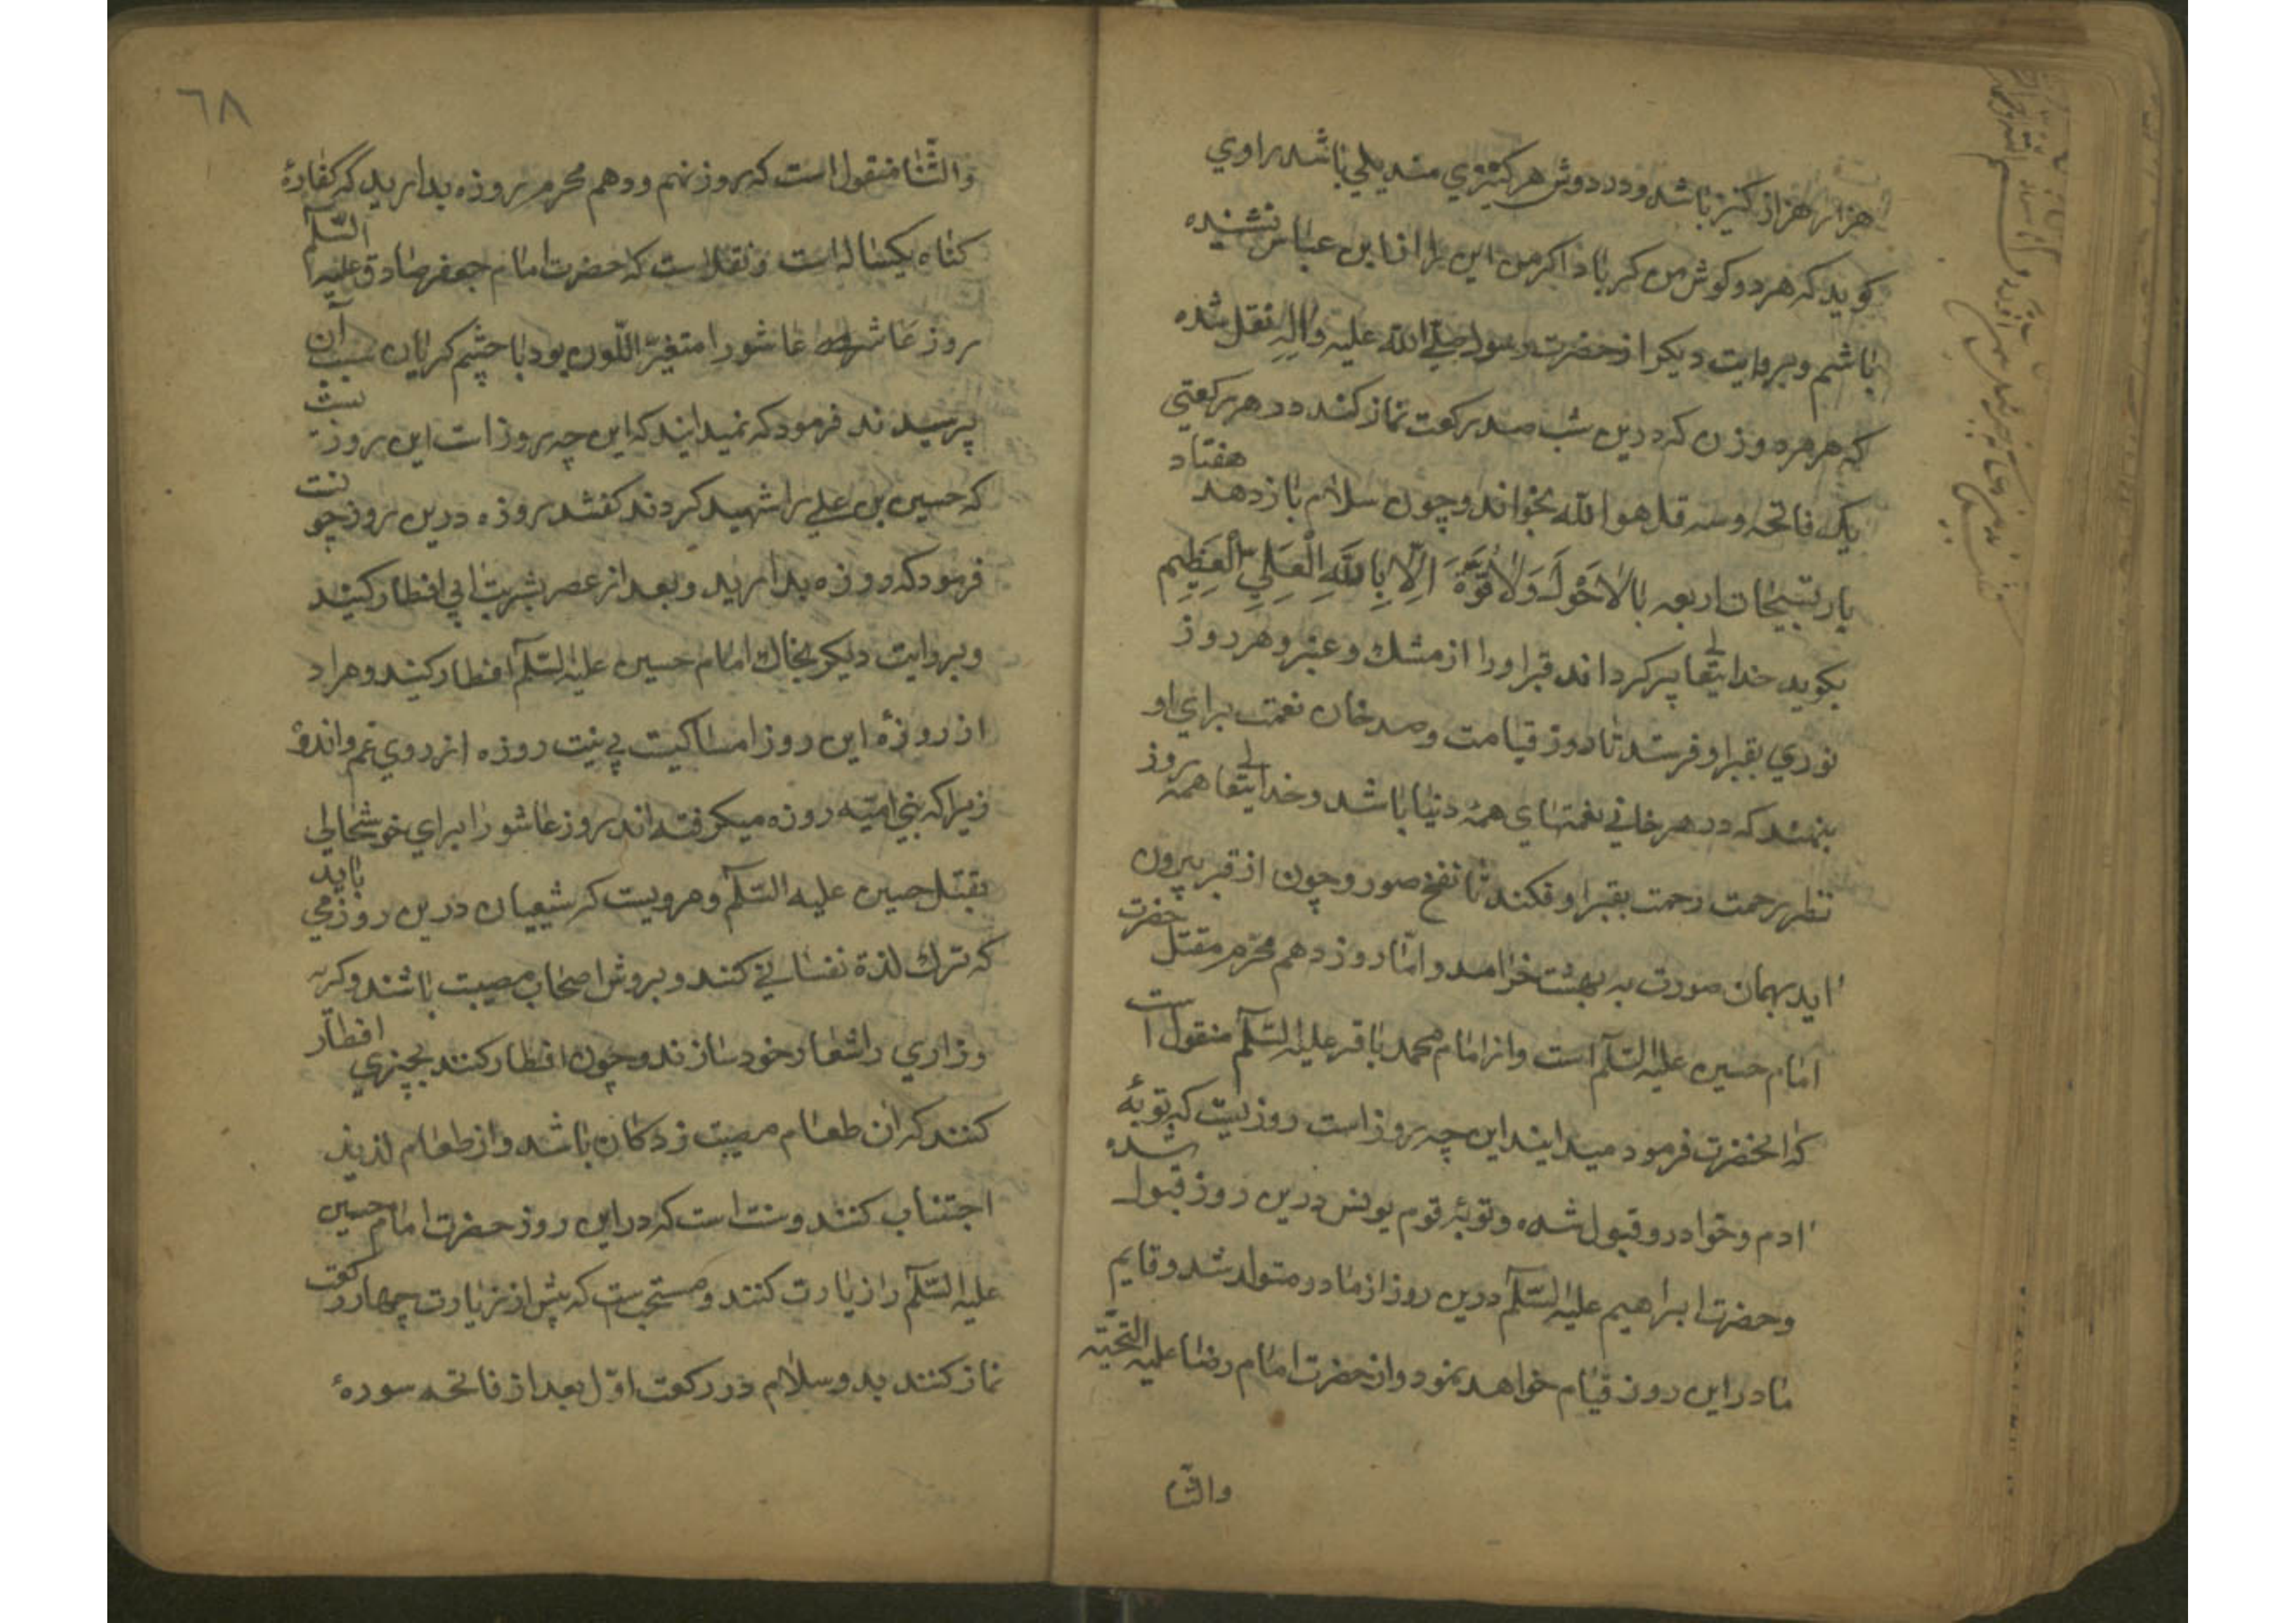 هزار هزار کنیز باشد و در دوش هر کنیزی مندیلی باشد راوی
کوید که هر دو کوش من کر باد اکر من این را از ابن عباس نشنیده
باشم و بروایت دیکر از حضرت رسول صلی الله علیه واله نقل شده
که هر مرد و زن که درین شب صد رکعت نماز کند در هر رکعتی
یک فاتحه و سه قل هو الله بخواند و چون سلام باز دهد هفتاد
بار تسبیحات اربعه با لَا حَوْلَ وَلَا قُوَّةَ اِلَّا بِاللَّهِ الْعَلِیِّ الْعَظِیمِ
بکوید خدایتعالی پر کرداند قبر او را از مشک و عنبر و هر روز
نوری بقبر او فرستد تا روز قیامت و صد خان نعمت برای او
بنهند که در هر خانی نعمتهای همهٔ دنیا باشد و خدایتعالی همه روز
نظر رحمت رحمت بقبر او فکند تا نفخ صور و چون از قبر بیرون
اید بهمان صورت به بهشت خرامد و امّا روز دهم محرّم مقتل حضرت
امام حسین علیه السّلم است و از امام محمد باقر علیه السّلم منقول است
که انحضرت فرمود میدانید این چه روز است روزیست که توبهٔ
ادم و حوّا درو قبول شده و توبهٔ قوم یونس درین روز قبول شده
و حضرت ابراهیم علیه السّلم درین روز از مادر متولد شد و قایم
ما در این روز قیام خواهد نمود و از حضرت امام رضا علیه التحیّه
والثنا
٦٨
والثّنا منقول است که روز نهم و دهم محرم روزه بدارید که کفارهٔ
کناه یکساله است و نقل است که حضرت امام جعفر صادق علیه السّلم
روز عاشورا متغیّر اللّون بود با چشم کریان سبب آن
پرسیدند فرمود که نمیدانید که این چه روز است این روزیست
که حسین بن علی را شهید کردند کفتند روزه درین روز چونست
فرمود که روزه بدارید و بعد از عصر بشربت ابی افطار کنید
و بروایت دیکر بخاک امام حسین علیه السّلم افطار کنید و مراد
از روزهٔ این روز امساکیست بی نیت روزه از روی غم و اندوه
زیرا که بنی امیّه روزه میکرفته اند روز عاشورا برای خوشحالی
بقتل حسین علیه السّلم و مرویست که شیعیان درین روز می باید
که ترک لذة نفسانی کنند و بروش اصحاب مصیبت باشند و کریه
و زاری را شعار خود سازند و چون افطار کنند بچیزی افطار
کنند که ان طعام مصیبت زدکان باشد و از طعام لذیذ
اجتناب کنند و سنت است که در این روز حضرت امام حسین
علیه السّلم را زیارت کنند و مستحب است که پیش از زیارت چهار رکعت
نماز کنند بدو سلام در رکعت اوّل بعد از فاتحه سورهٔ